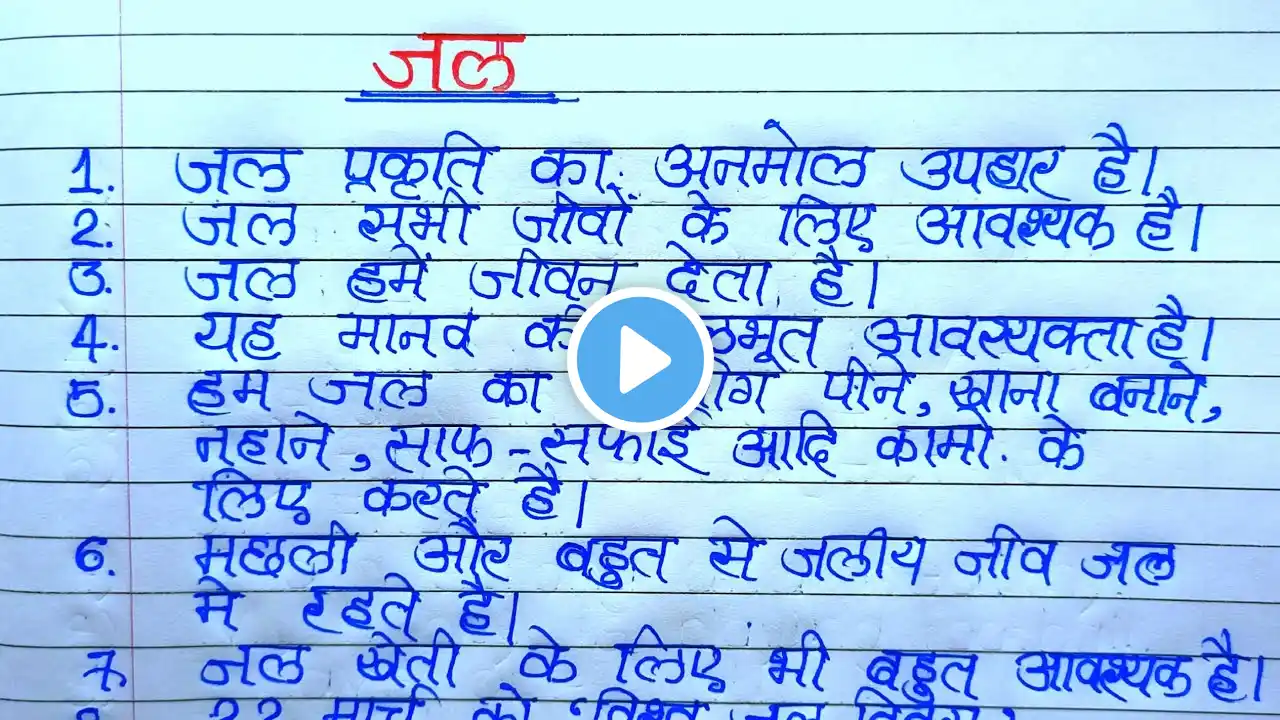 जल
1. जल प्रकृति का अनमोल उपहार है।
2. जल सभी जीवों के लिए आवश्यक है।
3. जल हमें जीवन देता है।
4. यह मानव की लभूत आवश्यक्ता है।
5. हम जल का योग पीने, खाना बनाने,
नहाने, साफ-सफाई आदि कामो के
लिए करते है।
6. मछली और बहुत से जलीय जीव जल
मे रहते है।
7. जल खेती के लिए भी बहुत आवश्यक है।
22 मार्च को 'विश्व जल दिवस'